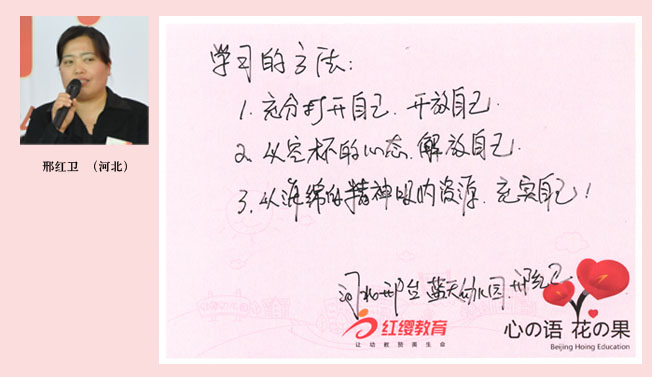 邢红卫 （河北）
学习的方法：
1. 充分打开自己，开放自己.
2. 从空杯的心态，解放自己.
3. 从海绵的精神吸内资源，充实自己！
河北邢台蓝天幼儿园.邢红卫
红缨教育
让幼教拥美生命
心の语 花の果
Beijing Hoing Education